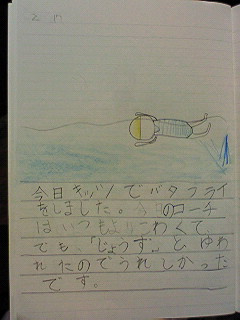 今日キッズでバタフライ
をしました。今日のコーチ
はいつもよりこわくて
でも、「じょうず。」とゆわ
れたのでうれしかった
です。